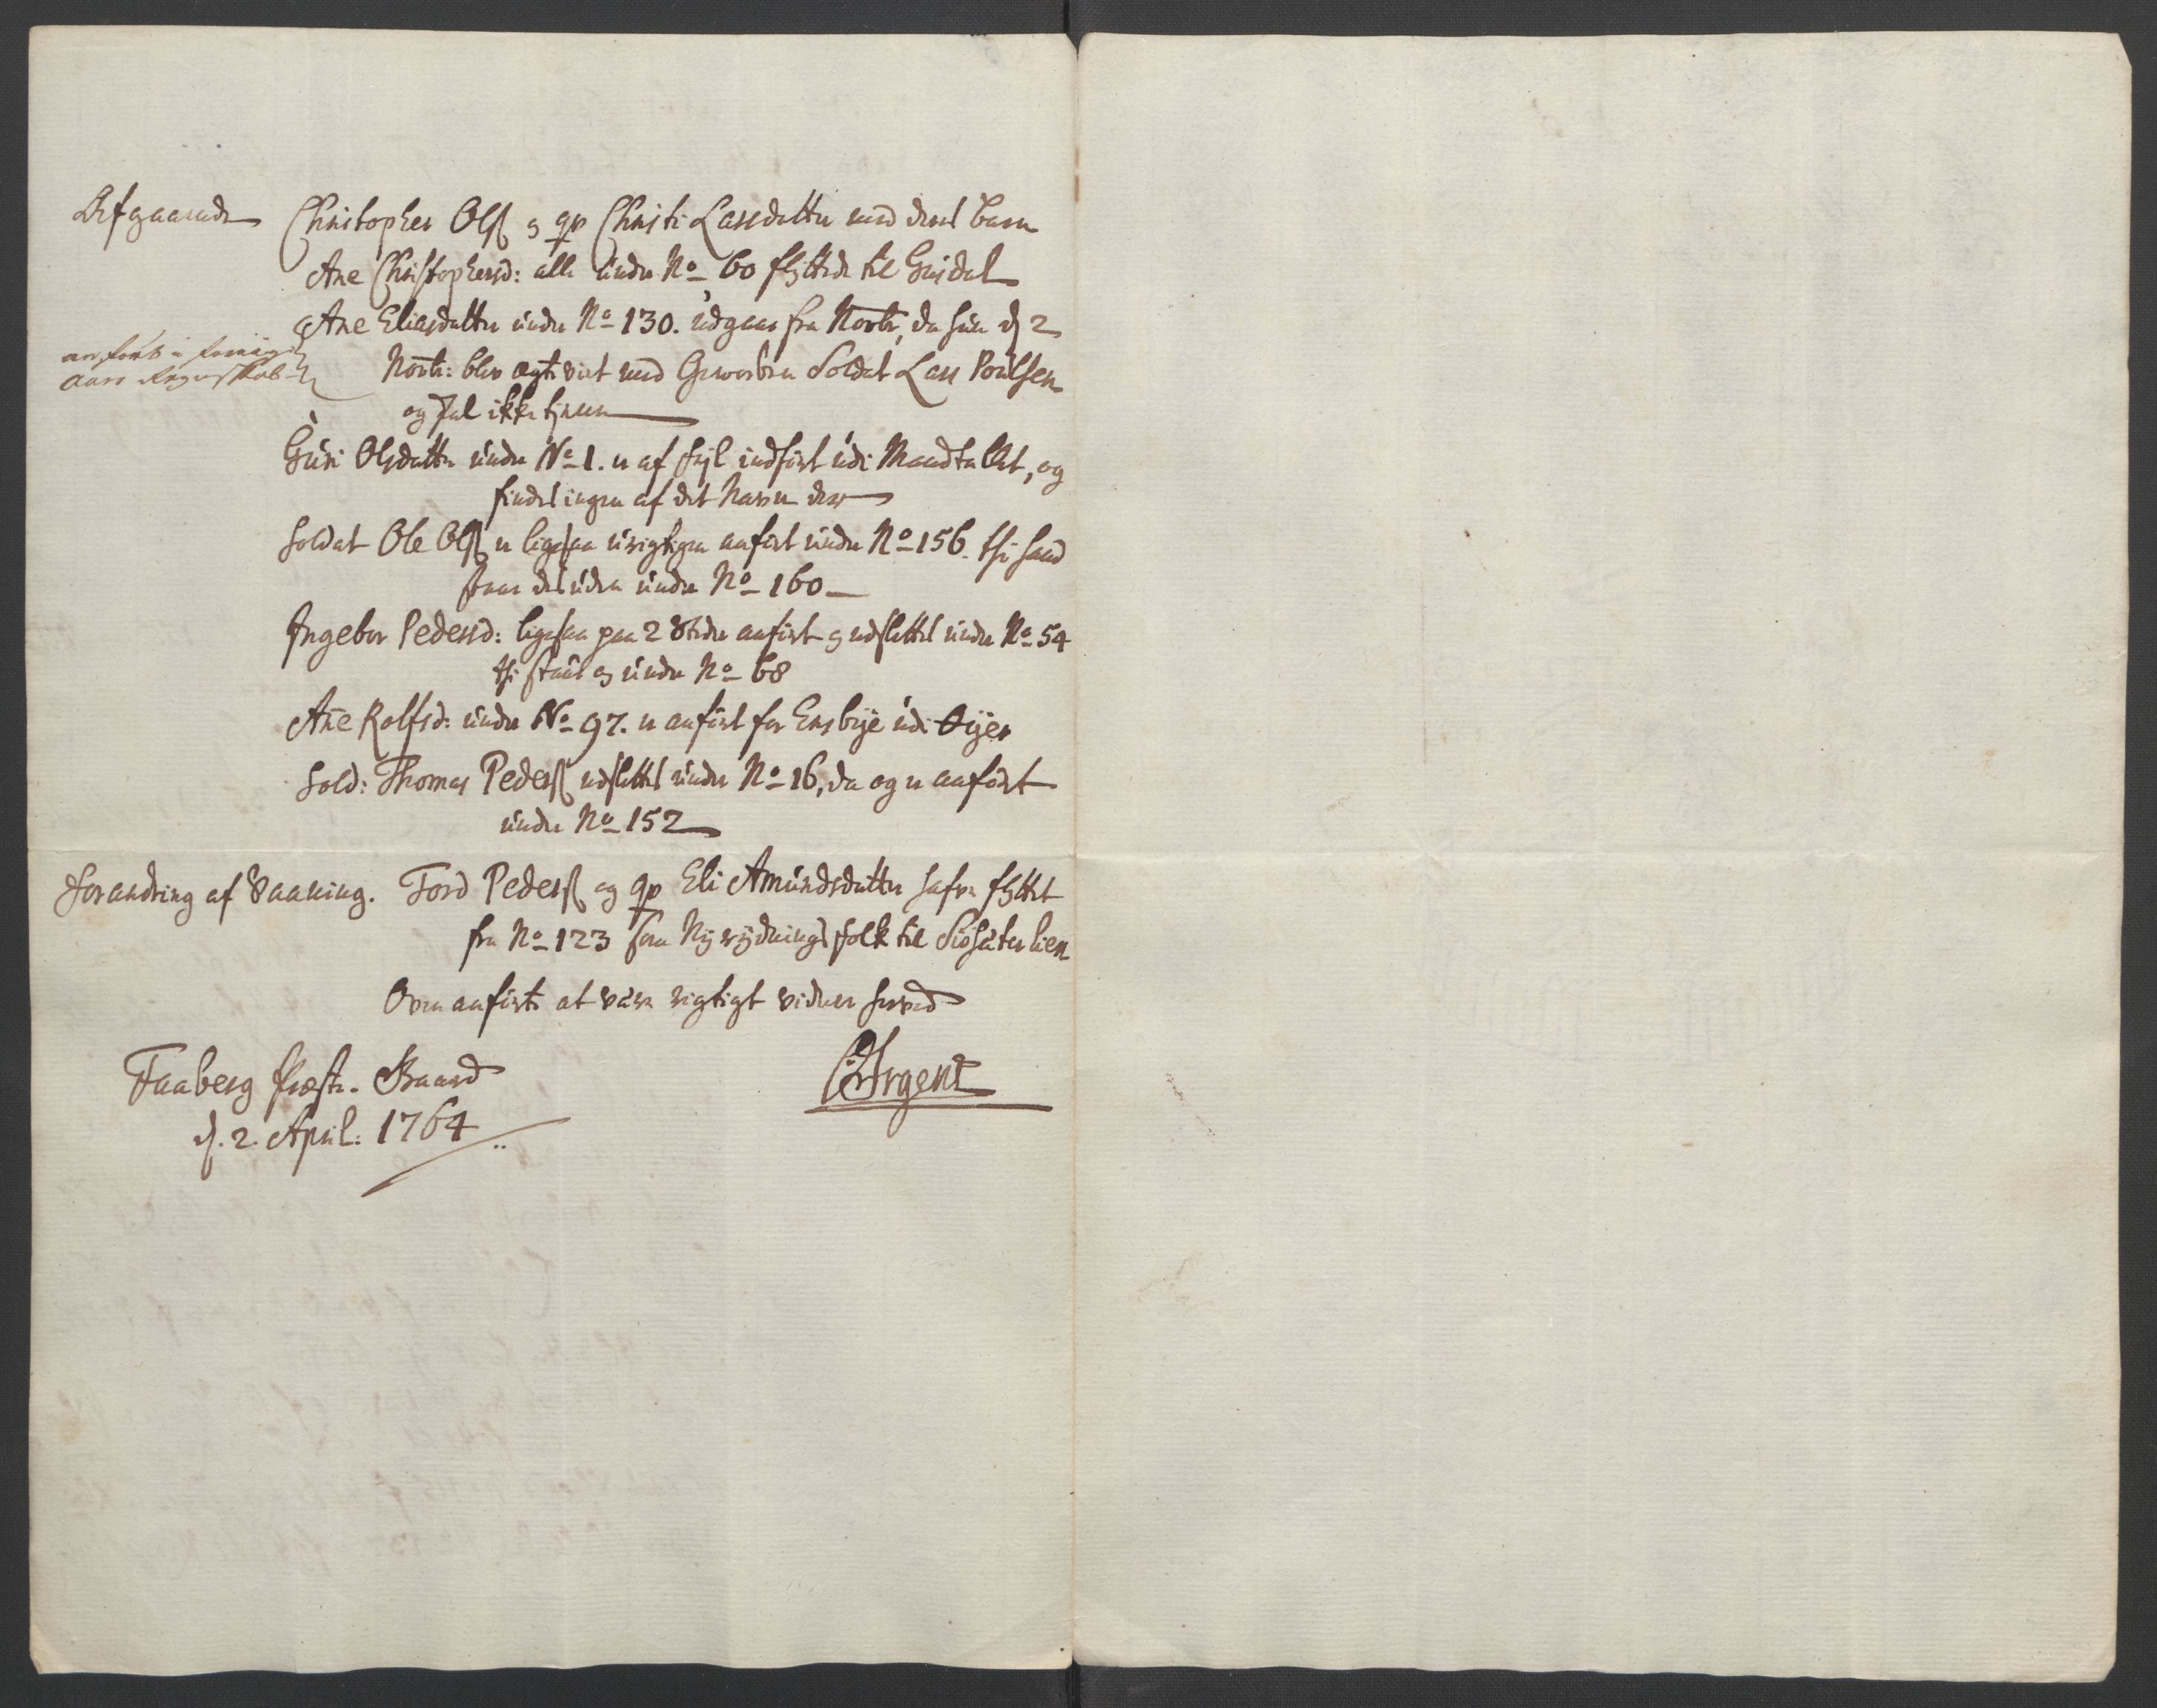 Afgaaende Christopher Olss og qv Christi Larsdatter med deres barn
Ane Christophersd: alle under No 60 flyttede til Gusdal
Ane Eliasdatter under No 130. udgaar fra Novbr, da hun d 2
anført i forrige
Novbr: blev ægteviet med Geworben Soldat Lars Poulsen
aars Regnskab
og skal ikke tjene
Guri Olsdatter under No 1. er af fejl indført udi Mandtallet, og
findes ingen af det Navn der
Soldat Ole Olss er ligesaa urigtigen anført under No 156. thi hand
staar desuden under No 160
Ingebor Pedersd: ligesaa paa 2 Steder anført og udslettes under No 54
thi staar og under No 68
Ane Rolfsd: under No 97. er anført for Ensbye udi Øyer
Sold: Thomas Pederss udslettes under No 16, da og er anført
under No 152
Forandring af Vaaning. Tord Pederss og qv Eli Amundsdatter hafve flyttet
fra No 123 som Nyrydningsfolk til Siøsæter lien
Oven anførte at være rigtigt vidner herved
Faaberg Præste-Gaard
d. 2. April: 1764